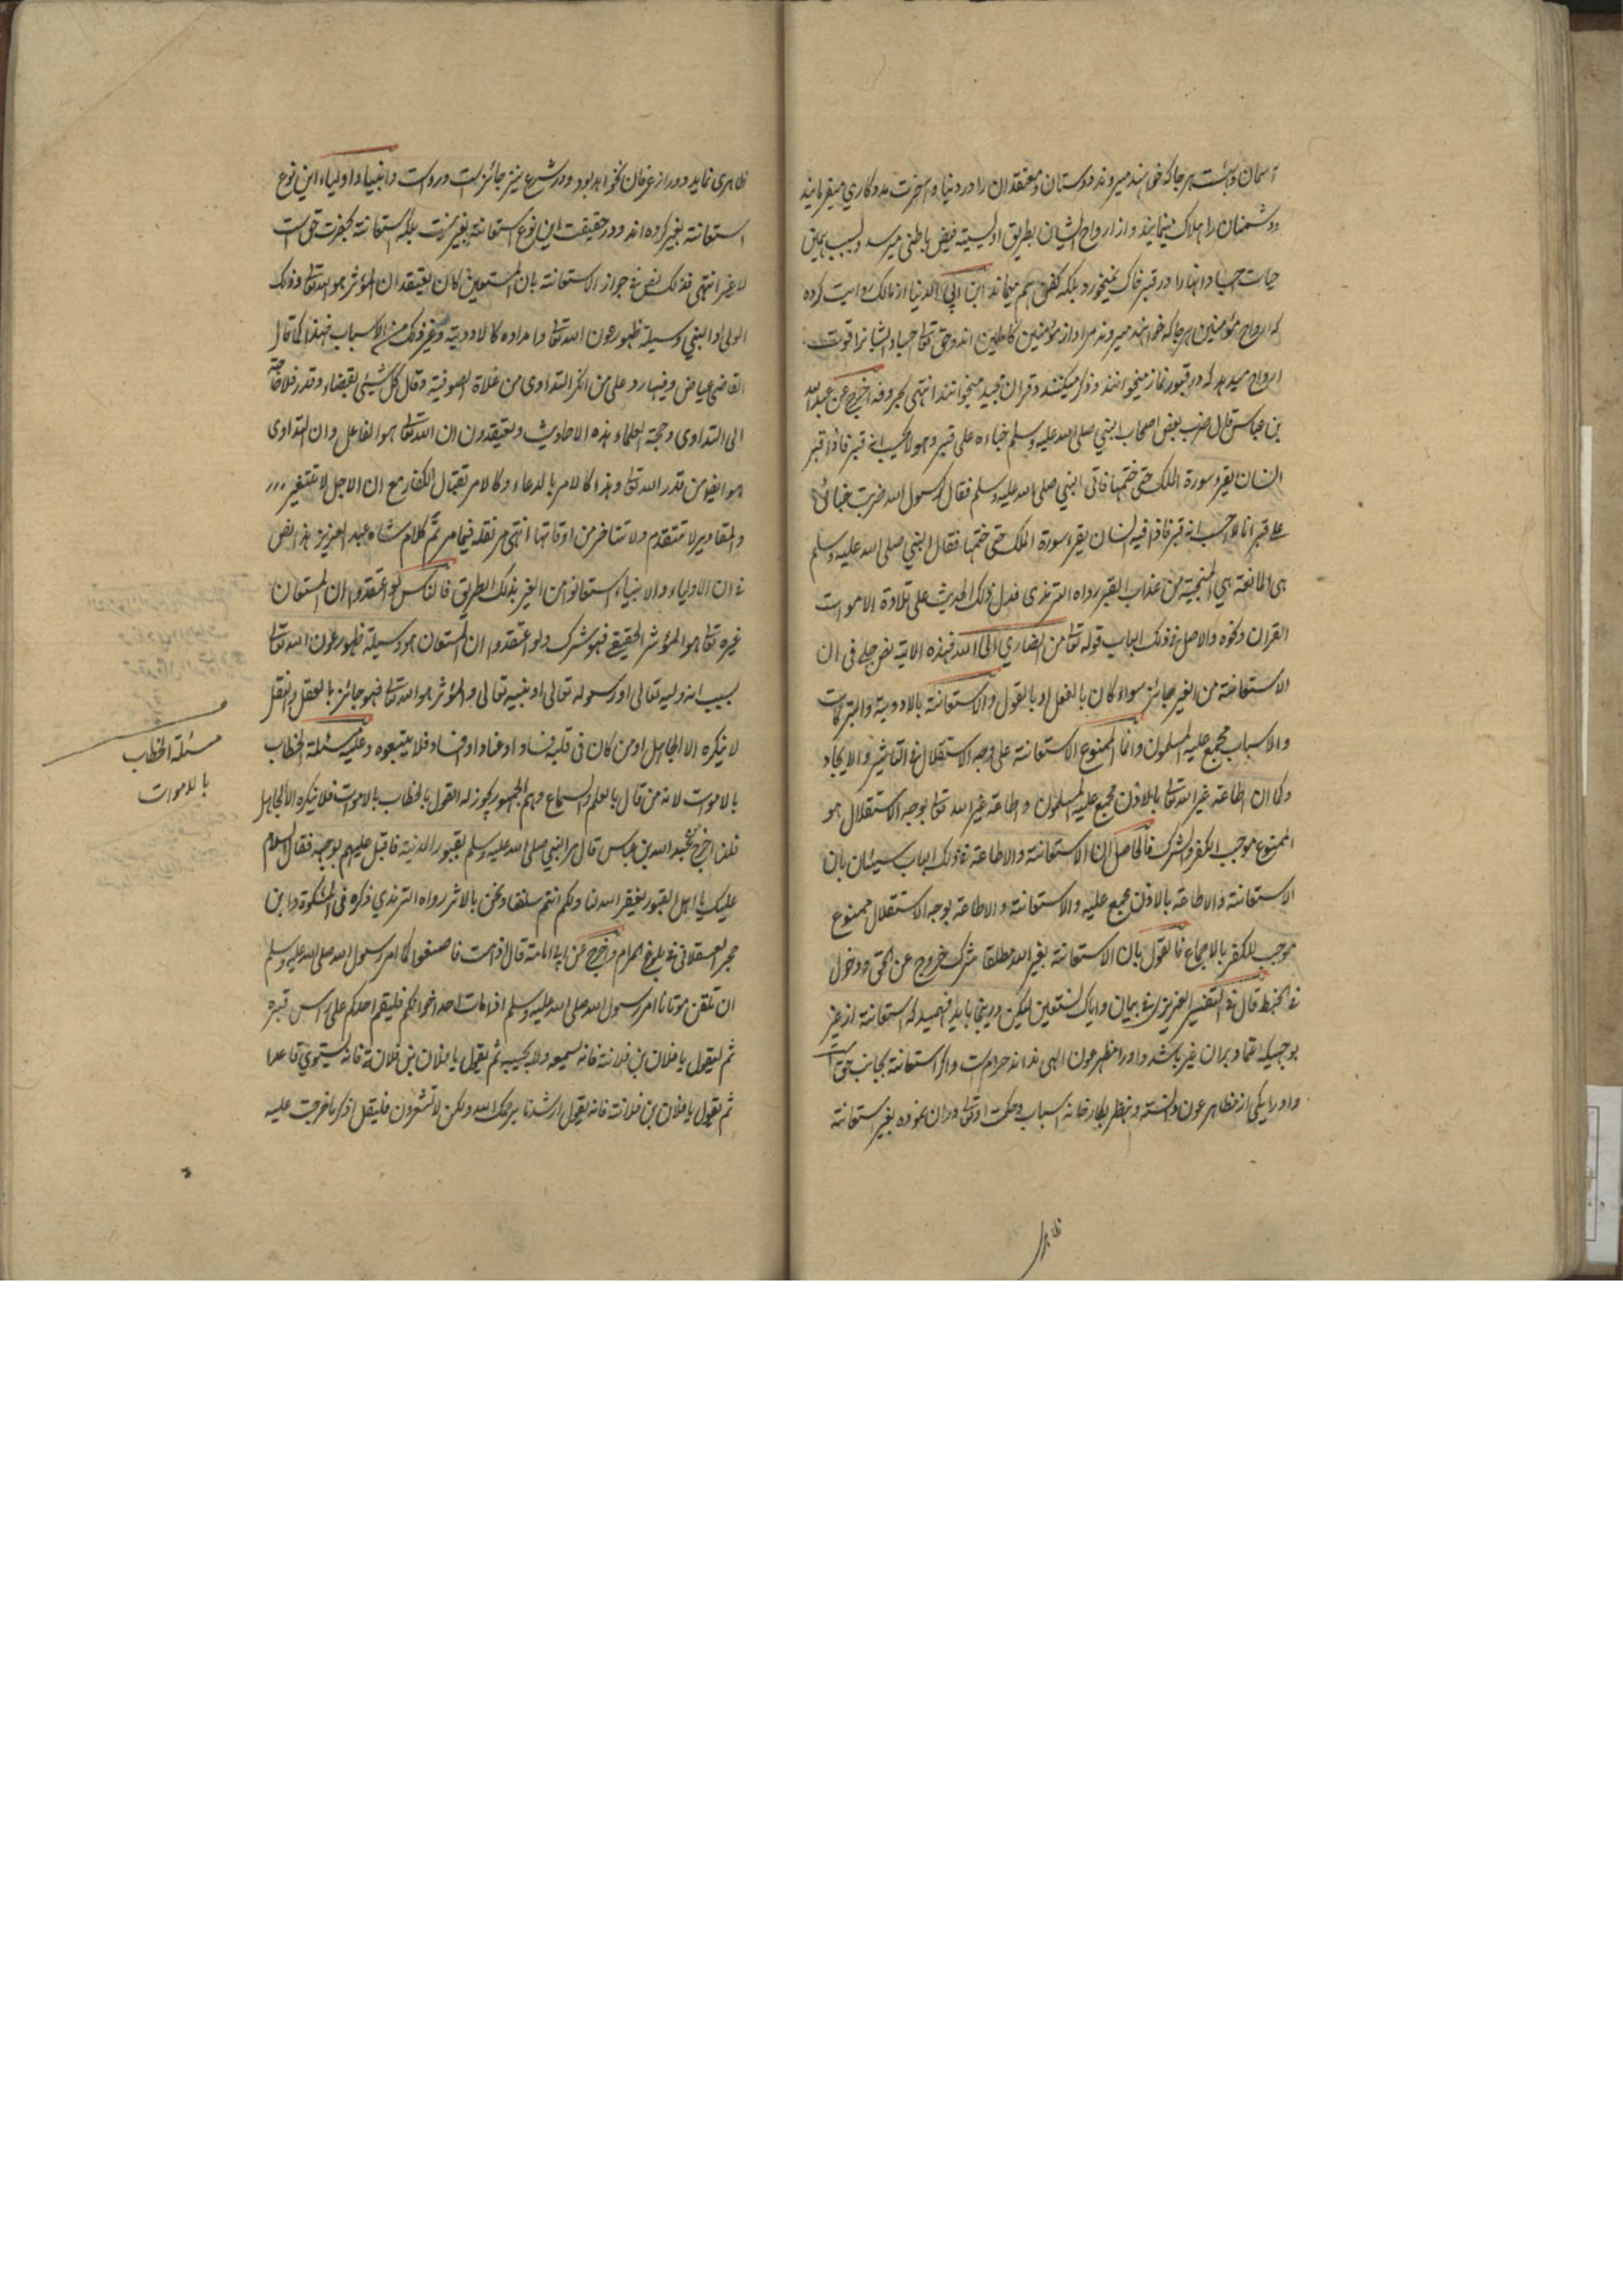 آسمان و بهشت هر جا که خواهند میروند و دوستان و معتقدان را در دنیا و آخرت مددکاری میفرمایند
و دشمنان را هلاک مینمایند و از ارواح ایشان بطریق اویسیته فیض باطنی میرسد و بسبب همین
حیات اجساد انها را در قبر خاک نمیخورد بلکه کفن هم میماند ابن ابی الدنیا از مالک روایت کرده
که ارواح مؤمنین هر جا که خواهند میروند مراد از مؤمنین کاملین اند و حق تعالی اجساد ایشانرا قوت
ارواح میدهد که در قبور نماز میخوانند و ذکر میکنند و قران مجید میخوانند انتهی بحروفه اخرج عن عبدالله
بن عباس قال ضرب بعض اصحاب النبی صلی الله علیه وسلم خباءه علی قبر وهو لا یحسب انه قبر فاذا قبر
انسان یقرء سورة الملک حتی ختمها فاتی النبی صلی الله علیه وسلم فقال رسول الله ضربت خبائی
علی قبر انا لا احسب انه قبر فاذا فیه انسان یقرء سورة الملک حتی ختمها فقال النبی صلی الله علیه وسلم
هی المانعة هی المنجیة من عذاب القبر رواه الترمذی فدل ذلک الحدیث علی تلاوة الاموات
القران ونحوه والاصل فی ذلک الباب قوله تعالی من انصاری الی الله فهذه الایة نص جلی فی ان
الاستعانة من الغیر جائز سواء کان بالفعل او بالقول والاستعانة بالادویة والتبرکات
والاسباب مجمع علیه المسلمون وانما الممنوع الاستعانة علی وجه الاستقلال فی التاثیر والایجاد
وکما ان اطاعة غیر الله تعالی بالاذن مجمع علیه المسلمون واطاعة غیر الله تعالی بوجه الاستقلال هو
الممنوع موجب الکفر والشرک فالحاصل ان الاستعانة والاطاعة فی ذلک الباب سیئان بان
الاستعانة والاطاعة بالاذن مجمع علیه والاستعانة والاطاعة بوجه الاستقلال ممنوع
موجب للکفر بالاجماع فالقول بان الاستعانة بغیر الله مطلقا شرک خروج عن الحق ودخول
فی الخبط قال فی التفسیر العزیزی فی بیان وایاک نستعین لیکن درینجا باید فهمید که استعانة از غیر
بوجهیکه اعتماد بران غیر باشد و او را مظهر عون الهی نداند حرام ست و اگر استعانة بجانب حق است
و او را یکی از مظاهر عون دانسته و نظر بکارخانه اسباب و حکمت او تعالی دران نموده بغیر استعانة
ظاهر
ظاهری نماید دور از عرفان نخواهد بود و در شرع نیز جائز ست و رواست و انبیاء و اولیاء این نوع
استعانة بغیر کرده اند و در حقیقت این نوع استعانة بغیر نیست بلکه استعانة بحضرت حق است
لا غیر انتهی فذلک نص فی جواز الاستعانة بان المستعین کان یعتقد ان المؤثر هو الله تعالی وذلک
الولی او النبی وسیلة ظهور عون الله تعالی وامداده کالادویة وغیر ذلک من الاسباب فهذا کما قال
القاضی عیاض وفیها رد علی من انکر التداوی من غلاة الصوفیة وقال کل شیئ بقضاء وقدر فلا حاجة
الی التداوی وحجة العلماء هذه الاحادیث ویعتقدون ان الله تعالی هو الفاعل وان التداوی
هو ایضا من قدر الله تعالی وهذا کالامر بالدعاء وکالامر بقتال الکفار مع ان الاجل لا یتغیر
والمقادیر لا تتقدم ولا تتاخر من اوقاتها انتهی مر نقله فیما مر ثم کلام شاه عبد العزیز هذا نص
فی ان الاولیاء والانبیاء استعانوا من الغیر بذلک الطریق فالناس لو اعتقدوا ان المستعان
غیره تعالی هو المؤثر الحقیقی فهو شرک ولو اعتقدوا ان المستعان هو وسیلة ظهور عون الله تعالی
بسبب انه ولیه تعالی او رسوله تعالی او نبیه تعالی والمؤثر هو الله تعالی فهو جائز بالعقل والنقل
لا ینکره الا الجاهل او من کان فی قلبه فساد او عناد او فلا یتبعوه وعلیه مسئلة الخطاب
بالاموت لانه من قال بالعلم والسماع وهم الجمهور یجوز له القول بالخطاب بالاموت فلا ینکره الا الجاهل
اخرج عن عبد الله بن عباس قال مر النبی صلی الله علیه وسلم بقبور المدینة فاقبل علیهم بوجهه فقال السلام
علیکم یا اهل القبور یغفر الله لنا ولکم انتم سلفنا ونحن بالاثر رواه الترمذی ذکره فی المشکوة وابن
حجر العسقلانی فی بلوغ المرام واخرج عن ابی امامة قال اذا مت فاصنعوا کما امر رسول الله صلی الله علیه وسلم
ان تلقن موتانا امر رسول الله صلی الله علیه وسلم اذا مات احد اخوانکم فلیقم احدکم علی راس قبره
ثم لیقول یا فلان بن فلانة فانه یسمعه ولا یجیبه ثم یقول یا فلان بن فلانة فانه یستوی قاعدا
ثم یقول یا فلان بن فلانة فانه یقول ارشدنا یرحمک الله ولکن لا تشعرون فلیقل اذکر ما خرجت علیه
مسئلة الخطاب
بالاموات